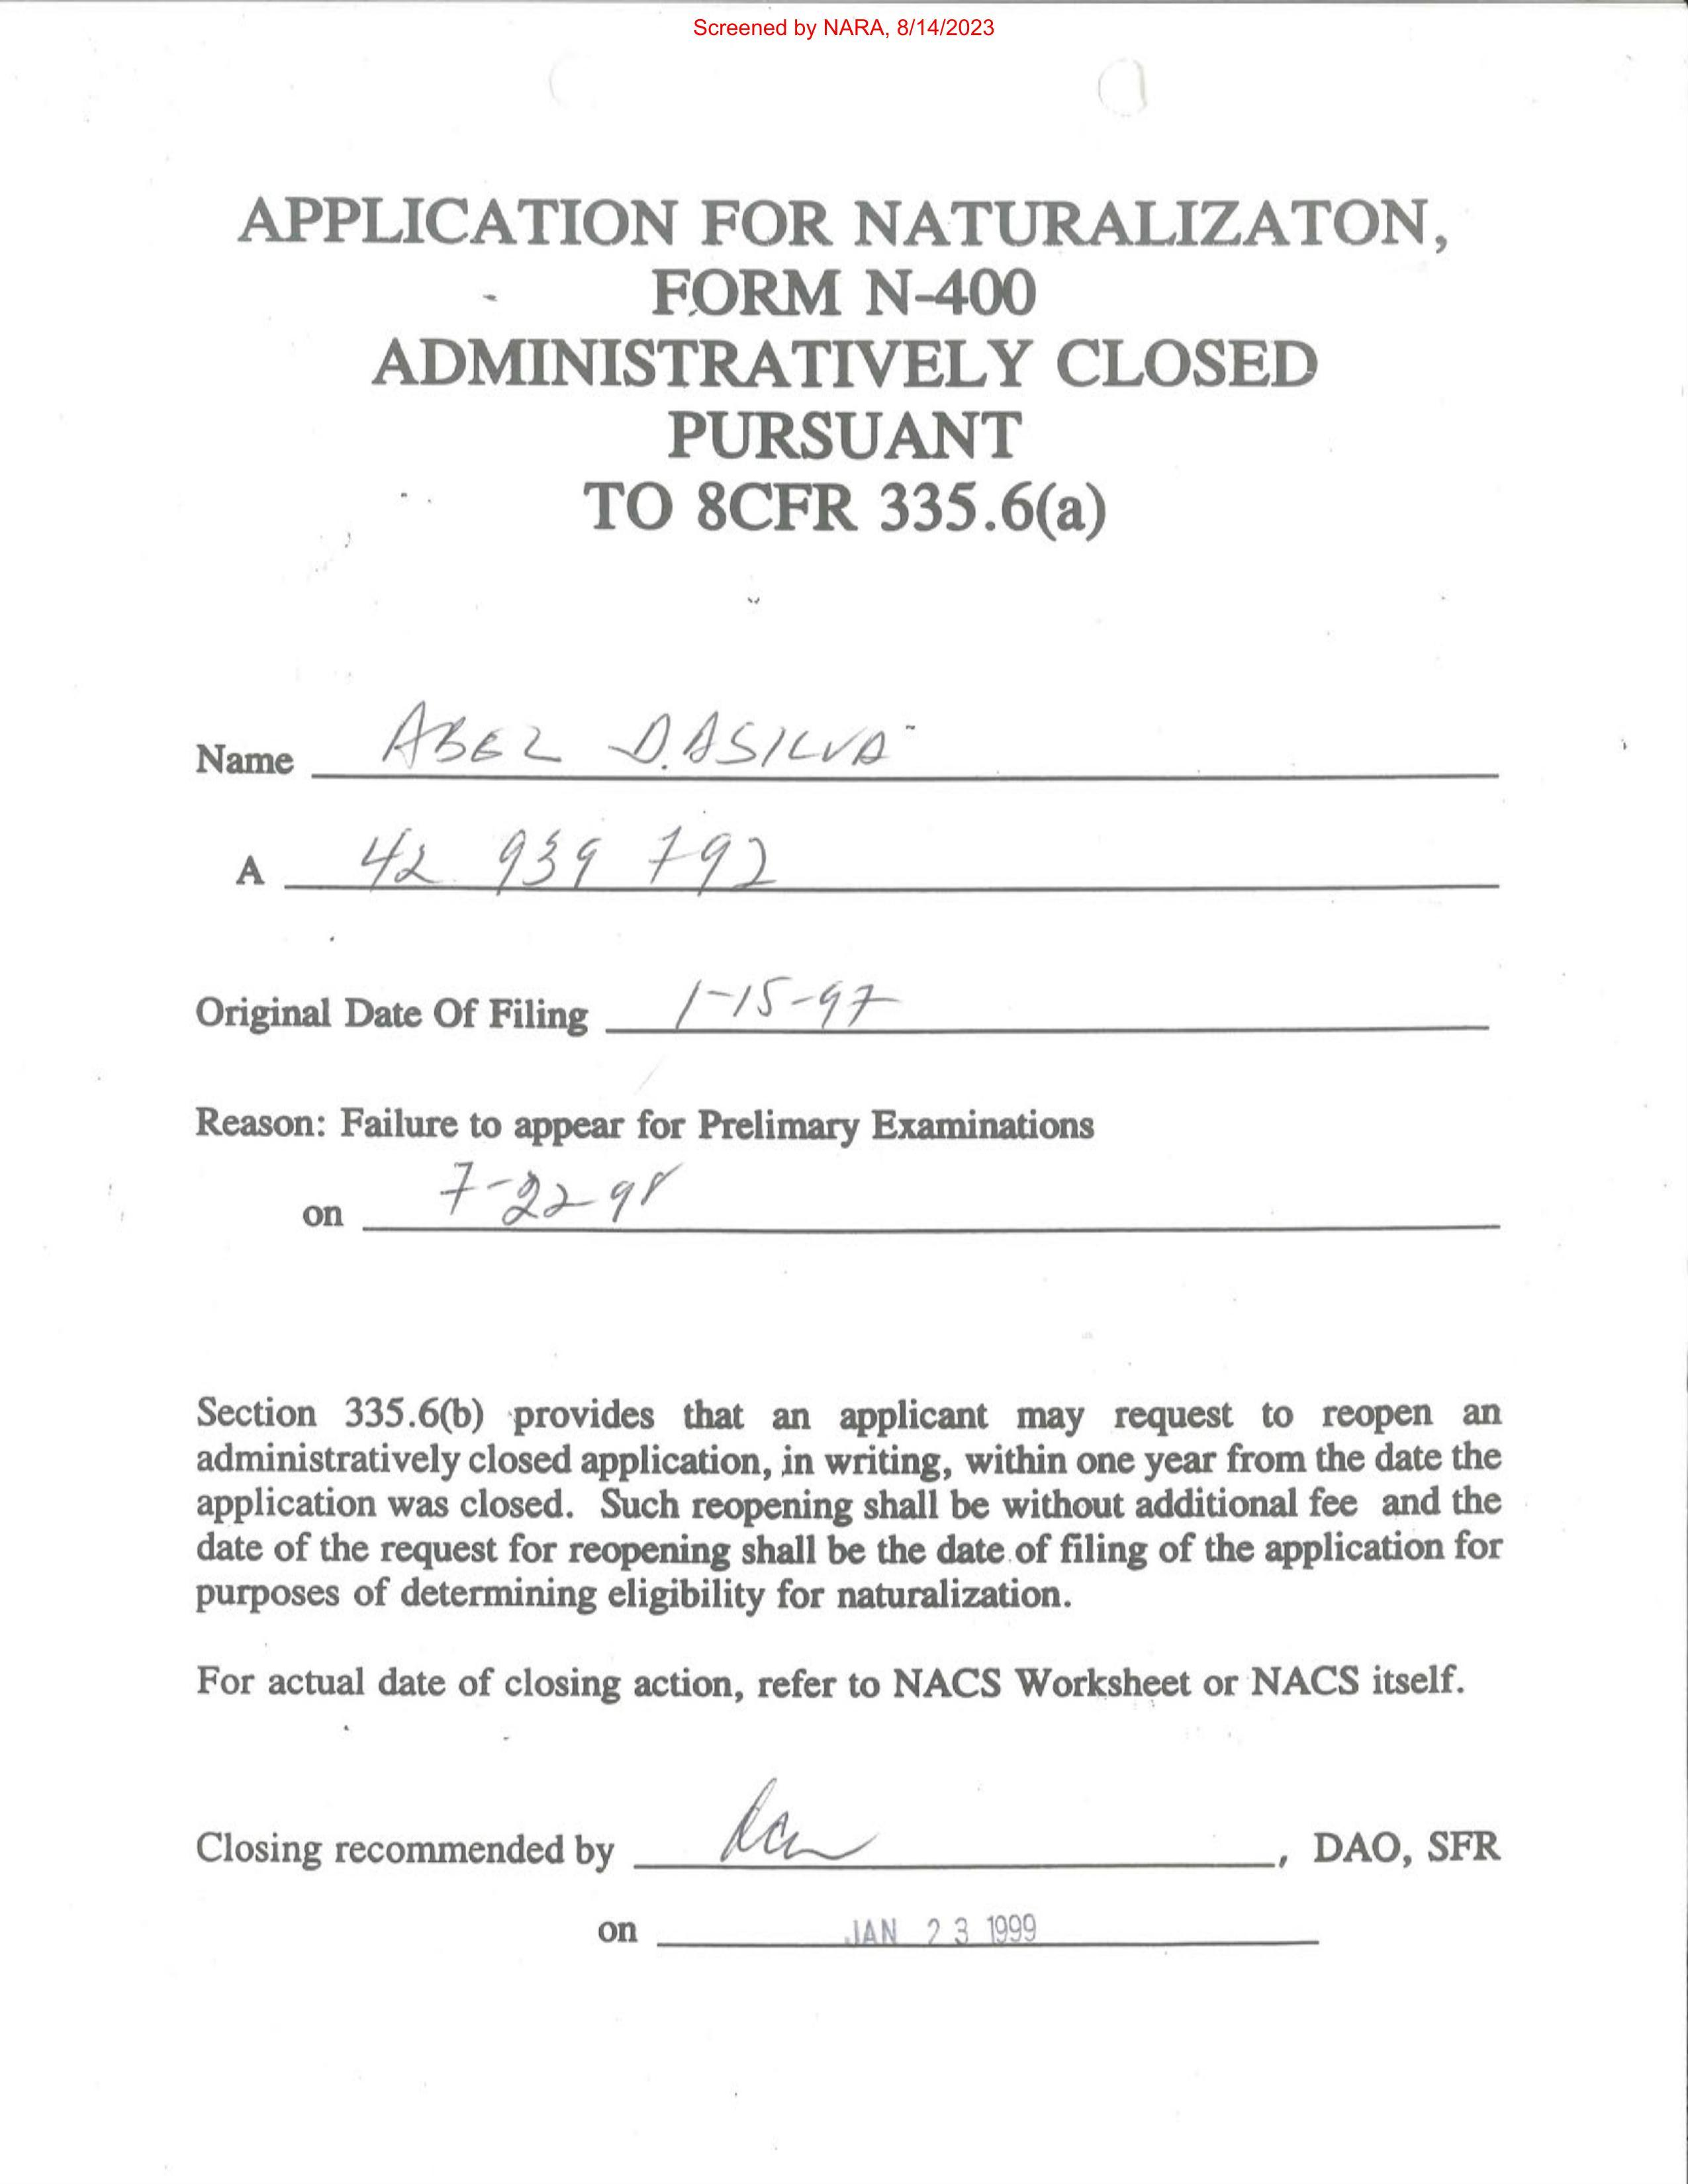 Screened by NARA, 8/14/2023
APPLICATION FOR NATURALIZATON,
FORM N-400
ADMINISTRATIVELY CLOSED
PURSUANT
TO 8CFR 335.6(a)
Name ABEL D.ASILVA
A 42 939 792
Original Date Of Filing 1-15-97
Reason: Failure to appear for Prelimary Examinations
on 7-22-98
Section 335.6(b) provides that an applicant may request to reopen an
administratively closed application, in writing, within one year from the date the
application was closed. Such reopening shall be without additional fee and the
date of the request for reopening shall be the date of filing of the application for
purposes of determining eligibility for naturalization.
For actual date of closing action, refer to NACS Worksheet or NACS itself.
Closing recommended by , DAO, SFR
on JAN 23 1999